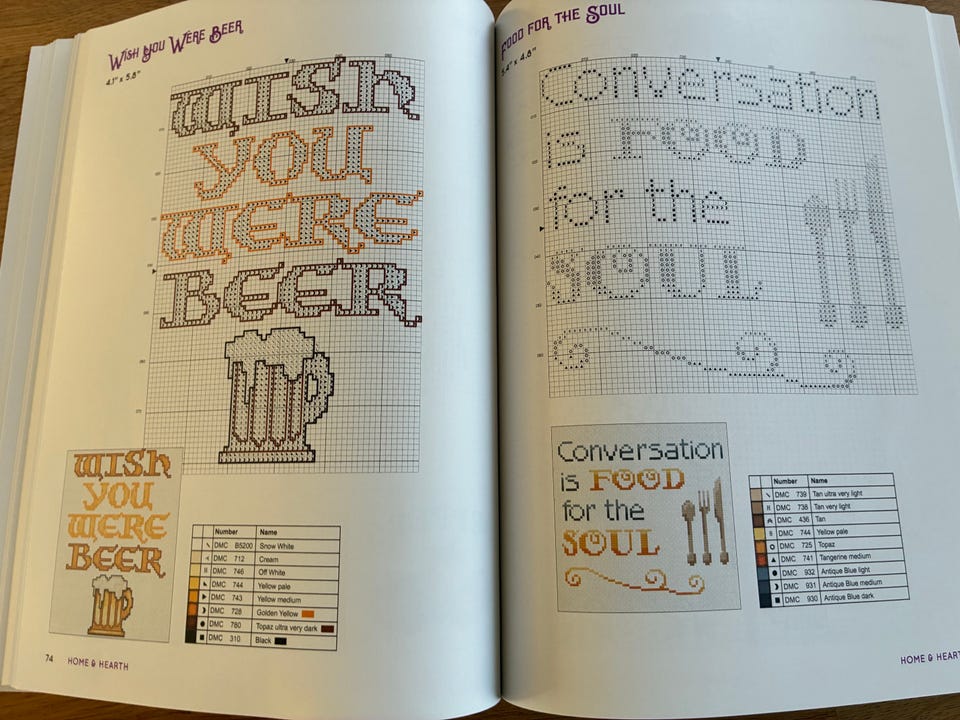 WISH YOU WERE BEER
4.1" x 5.8"
WISH
YOU
WERE
BEER
WISH
YOU
WERE
BEER
Number Name
DMC B5200 Snow White
DMC 712 Cream
DMC 746 Off White
DMC 744 Yellow pale
DMC 743 Yellow medium
DMC 728 Golden Yellow
DMC 780 Topaz ultra very dark
DMC 310 Black
74 HOME & HEARTH
FOOD FOR THE SOUL
5.4" x 4.8"
Conversation
is FOOD
for the
SOUL
Conversation
is FOOD
for the
SOUL
Number Name
DMC 739 Tan ultra very light
DMC 738 Tan very light
DMC 436 Tan
DMC 744 Yellow pale
DMC 725 Topaz
DMC 741 Tangerine medium
DMC 932 Antique Blue light
DMC 931 Antique Blue medium
DMC 930 Antique Blue dark
HOME & HEART